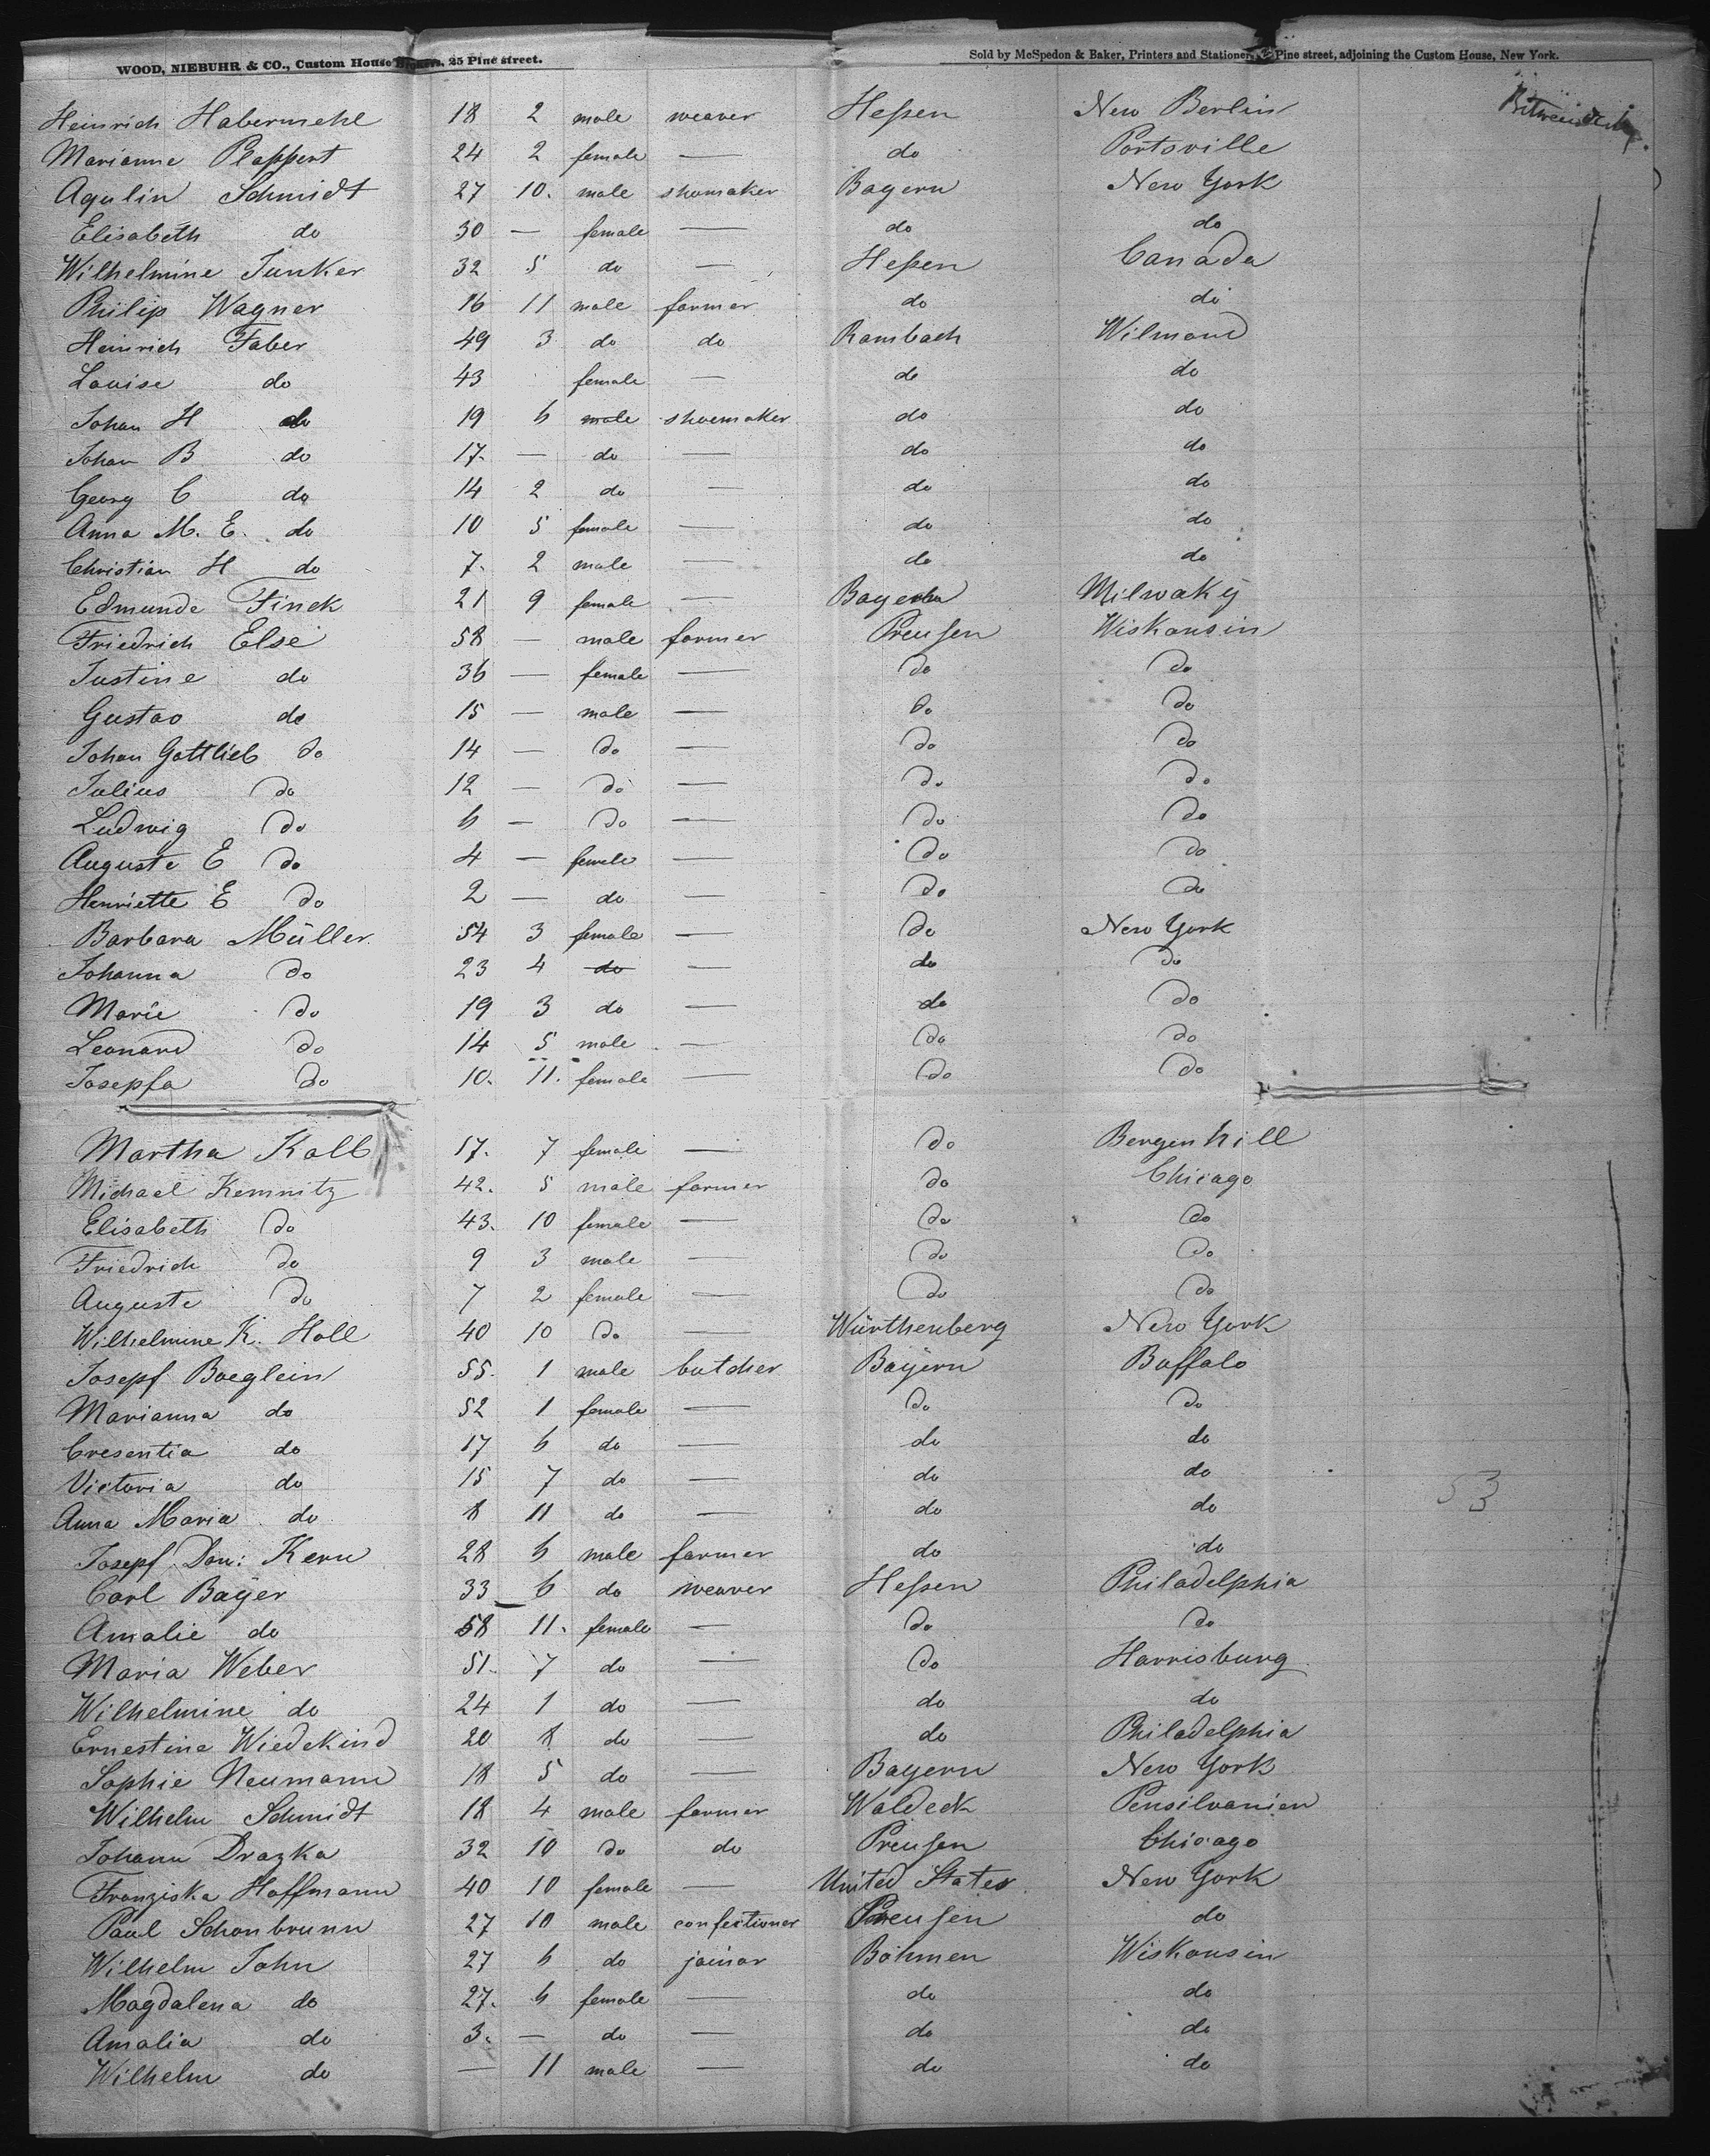 WOOD, NIEBUHR & CO., Custom House Brokers, 25 Pine street.
Sold by McSpedon & Baker, Printers and Stationers, Pine street, adjoining the Custom House, New York.
Heinrich Habermehl 18 2 male weaver Heßen New Berlin
Marianne Plappert 24 2 female — do Portsville
Aqulin Schmidt 27 10. male shumaker Bayern New York
Elisabeth do 30 — female — do do
Wilhelmine Junker 32 5 do — Heßen Canada
Philip Wagner 16 11 male farmer do do
Heinrich Faber 49 3 do do Rambach Wilmand
Louise do 43 female — do do
Johan H do 19 6 male shoemaker do do
Johan B do 17. — do — do do
Georg C do 14 2 do — do do
Anna M. E. do 10 5 female — do do
Christian H do 7. 2 male — do do
Edmunde Finck 21 9 female — Bayern Milwaky
Friedrich Else 58 — male farmer Preußen Wiskonsin
Justine do 36 — female — do do
Gustav do 15 — male — do do
Johan Gottlieb do 14 — do — do do
Julius do 12 — do — do do
Ludwig do 6 — do — do do
Auguste E do 4 — female — do do
Henriette E do 2 — do — do do
Barbara Müller 54 3 female — do New York
Johanna do 23 4 do — do do
Marie do 19 3 do — do do
Leonard do 14 5 male — do do
Josepfa do 10. 11. female — do do
Martha Kolb 17. 7 female — do Bergen hill
Michael Kemnitz 42. 5 male farmer do Chicago
Elisabeth do 43. 10 female — do do
Friedrich do 9 3 male — do do
Auguste do 7 2 female — do do
Wilhelmine K. Holl 40 10 do — Würthenberg New York
Josepf Boeglein 55. 1 male butcher Bayern Buffalo
Marianna do 52 1 female — do do
Cresentia do 17 6 do — do do
Victoria do 15 7 do — do do
53
Anna Maria do 8 11 do — do do
Josepf Don: Kern 28 6 male farmer do do
Carl Bayer 33 6 do weaver Heßen Philadelphia
Amalie do 58 11. female — do do
Maria Weber 51. 7 do — do Harrisburg
Wilhelmine do 24 1 do — do do
Ernestine Wiedekind 20 8 do — do Philadelphia
Sophie Neumann 18 5 do — Bayern New York
Wilhelm Schmidt 18 4 male farmer Waldeck Pensilvanien
Johann Drazka 32 10 do do Preußen Chicago
Franziska Hoffmann 40 10 female — United States New York
Paul Schonbrunn 27 10 male confectioner Preußen do
Wilhelm John 27 6 do joinor Böhmen Wiskonsin
Magdalena do 27. 6 female — do do
Amalia do 3. — do — do do
Wilhelm do — 11 male — do do